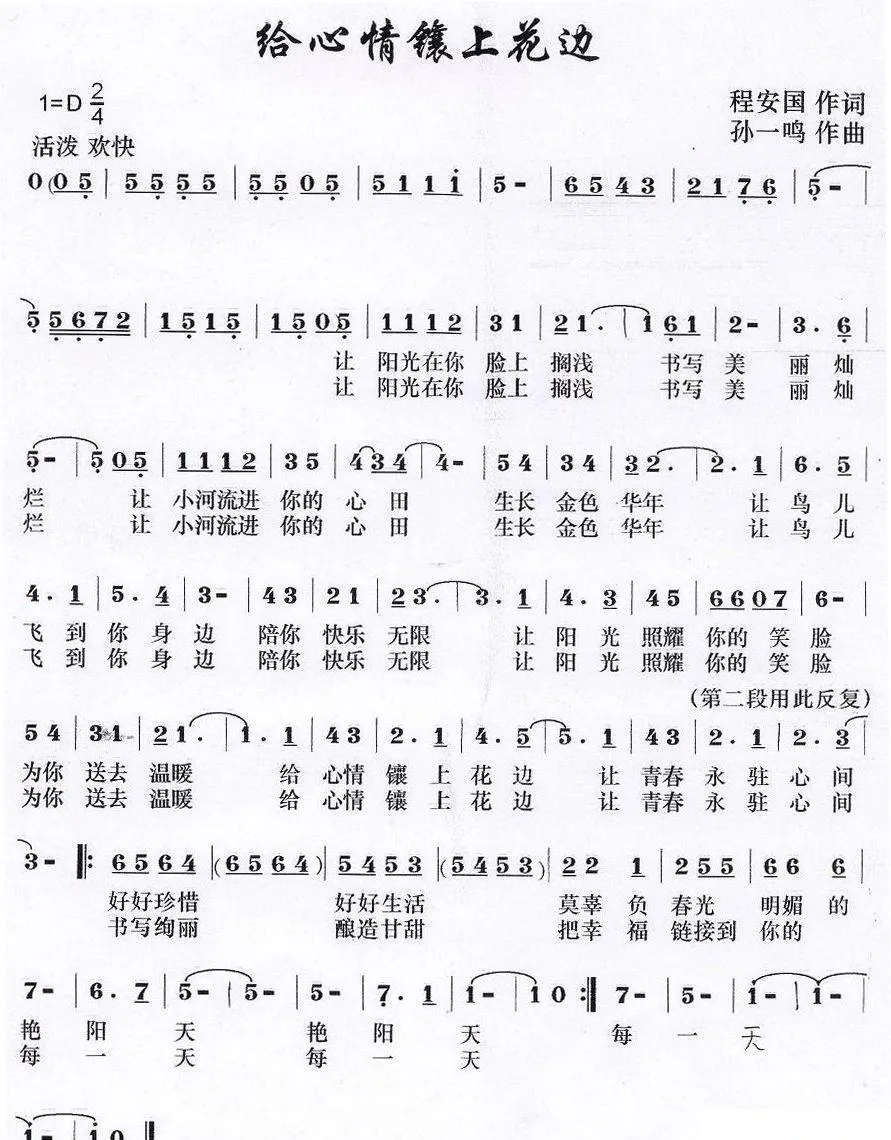 给心情镶上花边
1=D 2/4
程安国 作词
活泼 欢快
孙一鸣 作曲
0 (0 5 | 5 5 5 5 | 5 5 0 5 | 5 1 1 i | 5 - | 6 5 4 3 | 2 1 7 6 | 5 - |
5 5 6 7 2 | 1 5 1 5 | 1 5 0 5 | 1 1 1 2 | 3 1 | 2 1 . | 1 6 1 | 2 - | 3 . 6 |
让 阳光在你 脸上 搁浅 书写 美 丽 灿
让 阳光在你 脸上 搁浅 书写 美 丽 灿
5 - | 5 0 5 | 1 1 1 2 | 3 5 | 4 3 4 | 4 - | 5 4 | 3 4 | 3 2 . | 2 . 1 | 6 . 5 |
烂 让 小河流进 你的 心 田 生长 金色 华年 让 鸟 儿
烂 让 小河流进 你的 心 田 生长 金色 华年 让 鸟 儿
4 . 1 | 5 . 4 | 3 - | 4 3 | 2 1 | 2 3 . | 3 . 1 | 4 . 3 | 4 5 | 6 6 0 7 | 6 - |
飞 到 你 身 边 陪你 快乐 无限 让 阳 光 照耀 你的 笑 脸
飞 到 你 身 边 陪你 快乐 无限 让 阳 光 照耀 你的 笑 脸
(第二段用此反复)
5 4 | 3 1 | 2 1 . | 1 . 1 | 4 3 | 2 . 1 | 4 . 5 | 5 . 1 | 4 3 | 2 . 1 | 2 . 3 |
为你 送去 温暖 给 心情 镶 上 花 边 让 青春 永 驻 心 间
为你 送去 温暖 给 心情 镶 上 花 边 让 青春 永 驻 心 间
3 - ‖: 6 5 6 4 | (6 5 6 4) | 5 4 5 3 | (5 4 5 3) | 2 2 1 | 2 5 5 | 6 6 6 |
好好珍惜 好好生活 莫辜 负 春光 明媚 的
书写绚丽 酿造甘甜 把幸 福 链接到 你的
7 - | 6 . 7 | 5 - | 5 - | 5 - | 7 . 1 | 1 - | 1 0 :‖ 7 - | 5 - | i - | i - |
艳 阳 天 艳 阳 天 每 一 天
每 一 天 每 一 天
i - | i 0 ‖